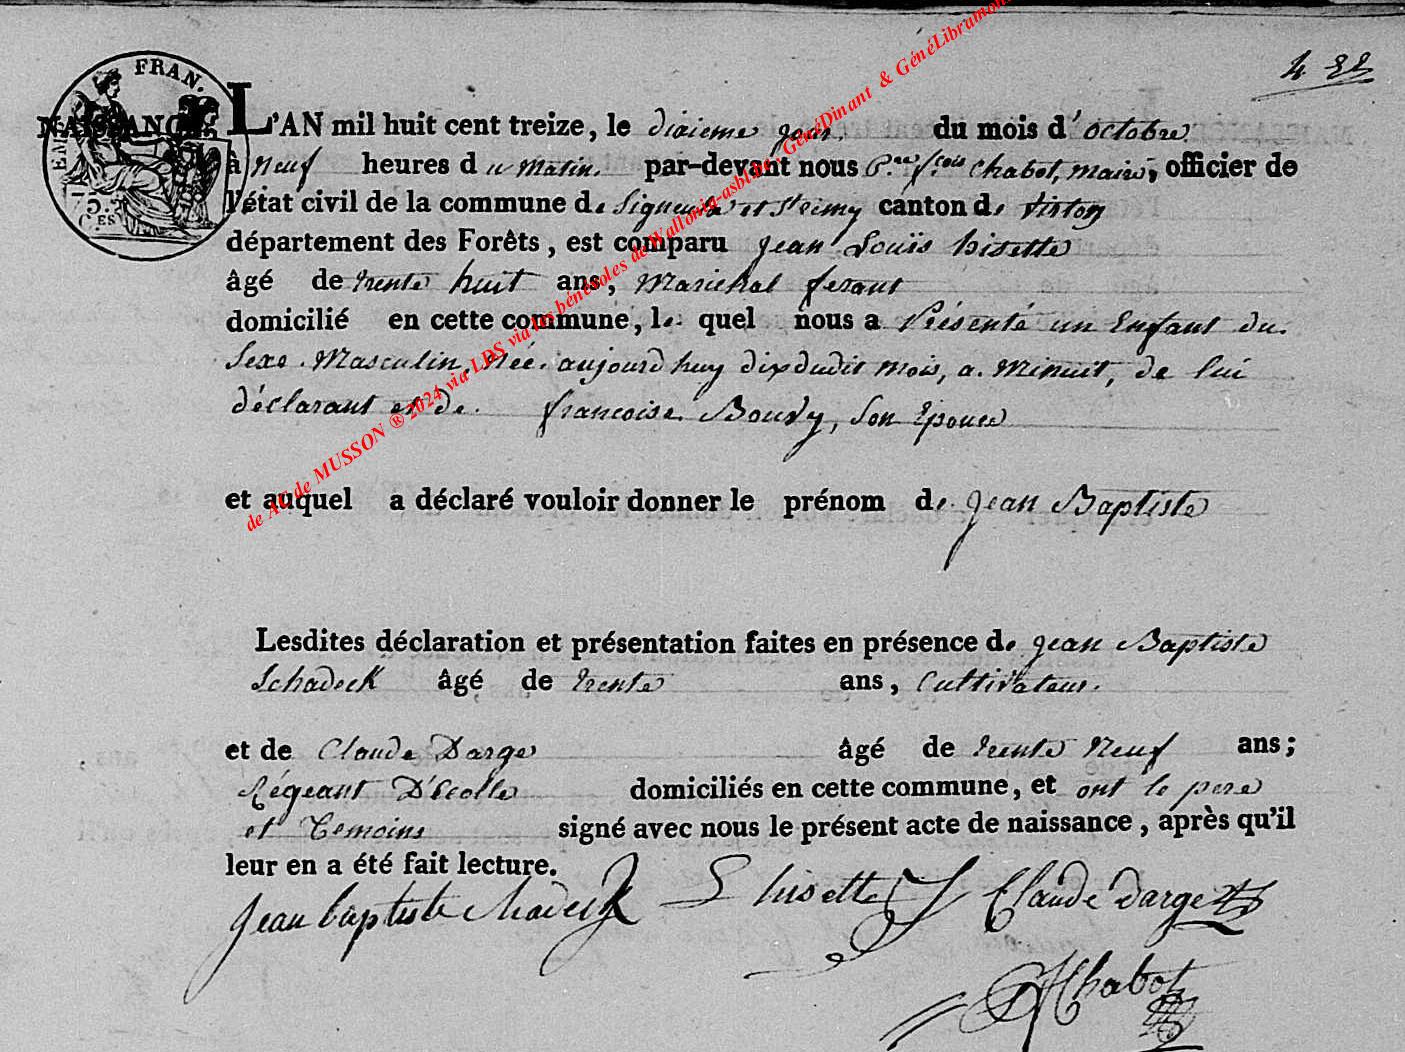 4 22
FRAN.
NAISSANCE
EMP
75.
C.ES
L'AN mil huit cent treize, le dixieme jour du mois d'octobre
à Neuf heures du Matin. par-devant nous P.re f.cois Chabot, Maire, officier de
l'état civil de la commune de Signeulx et canton de virton
département des Forêts, est comparu Jean Louïs hisette
âgé de trente huit ans, Marichal ferant
domicilié en cette commune, lequel nous a Présenté un Enfant du
Sexe Masculin, Née aujourd huy dix dudit mois, a Minuit, de lui
déclarant et de francoise Bouvy, Son Epouse
et auquel a déclaré vouloir donner le prénom de Jean Baptiste
Lesdites déclaration et présentation faites en présence de Jean Baptiste
Schadeck âgé de trente ans, Cultivateur.
et de Claude Darge âgé de trente Neuf ans;
Régeant D'Ecolle domiciliés en cette commune, et ont le pere
et Temoins signé avec nous le présent acte de naissance, après qu'il
leur en a été fait lecture.
Jean baptiste chadeck L hisette Claude darge
Chabot
de AC de MUSSON ® 2024 via LDS via les bénévoles de Wallonia-asbl.be, GénéDinant & GénéLibramont